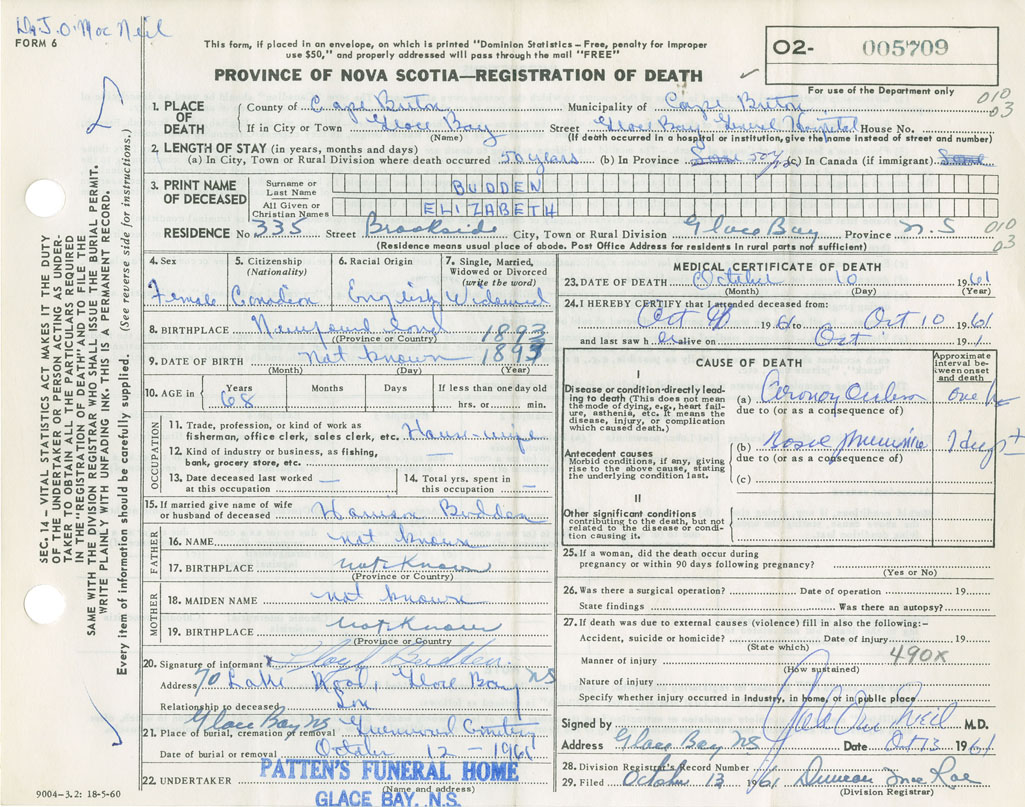 Dr. J. O. MacNeil
FORM 6
This form, if placed in an envelope, on which is printed "Dominion Statistics – Free, penalty for improper
use $50," and properly addressed will pass through the mail "FREE"
PROVINCE OF NOVA SCOTIA—REGISTRATION OF DEATH
O2- 005709
For use of the Department only
010
03
1. PLACE OF DEATH
County of Cape Breton Municipality of Cape Breton
If in City or Town Glace Bay Street Glace Bay General Hospital House No.
(Name) (If death occurred in a hospital or institution, give the name instead of street and number)
2. LENGTH OF STAY (in years, months and days)
(a) In City, Town or Rural Division where death occurred 50 years (b) In Province Same 50 yrs (c) In Canada (if immigrant) Same
3. PRINT NAME OF DECEASED
Surname or Last Name BUDDEN
All Given or Christian Names ELIZABETH
RESIDENCE No 335 Street Brookside City, Town or Rural Division Glace Bay Province N.S
010
03
(Residence means usual place of abode. Post Office Address for residents in rural parts not sufficient)
4. Sex
Female
5. Citizenship (Nationality)
Canadian
6. Racial Origin
English
7. Single, Married, Widowed or Divorced (write the word)
Widowed
8. BIRTHPLACE Newfoundland 1893
(Province or Country)
9. DATE OF BIRTH not known 1893
(Month) (Day) (Year)
10. AGE in Years 68 Months Days If less than one day old
hrs. or min.
OCCUPATION
11. Trade, profession, or kind of work as
fisherman, office clerk, sales clerk, etc. House-wife
12. Kind of industry or business, as fishing,
bank, grocery store, etc. —
13. Date deceased last worked
at this occupation —
14. Total yrs. spent in
this occupation —
15. If married give name of wife
or husband of deceased Budden
FATHER
16. NAME not known
17. BIRTHPLACE not known
(Province or Country)
MOTHER
18. MAIDEN NAME not known
19. BIRTHPLACE not known
(Province or Country)
20. Signature of informant Budden
Address 70 Lake Road, Glace Bay NS
Relationship to deceased Son
Glace Bay NS
21. Place of burial, cremation or removal Greenwood Cemetery
Date of burial or removal October 12 – 1961
22. UNDERTAKER PATTEN'S FUNERAL HOME
(Name and address)
GLACE BAY, N.S.
9004–3.2: 18-5-60
MEDICAL CERTIFICATE OF DEATH
23. DATE OF DEATH October 10 1961
(Month) (Day) (Year)
24. I HEREBY CERTIFY that I attended deceased from:
Oct 1961 to Oct 10 1961
and last saw her alive on Oct 191
CAUSE OF DEATH
Approximate interval between onset and death
I
Disease or condition directly leading to death (This does not mean the mode of dying, e.g., heart failure, asthenia, etc. It means the disease, injury, or complication which caused death.)
(a) Coronary one
due to (or as a consequence of)
Antecedent causes
Morbid conditions, if any, giving rise to the above cause, stating the underlying condition last.
(b) days +
due to (or as a consequence of)
(c)
II
Other significant conditions
contributing to the death, but not related to the disease or condition causing it.
25. If a woman, did the death occur during
pregnancy or within 90 days following pregnancy?
(Yes or No)
26. Was there a surgical operation? Date of operation 19
State findings Was there an autopsy?
27. If death was due to external causes (violence) fill in also the following:–
Accident, suicide or homicide? Date of injury 19
(State which)
490X
Manner of injury
(How sustained)
Nature of injury
Specify whether injury occurred in industry, in home, or in public place
Signed by M.D.
Address Glace Bay NS Date Oct 13 1961
28. Division Registrar's Record Number
29. Filed October 13 1961 Duncan MacRae
(Division Registrar)
SEC. 14 – VITAL STATISTICS ACT MAKES IT THE DUTY
OF THE UNDERTAKER OR PERSON ACTING AS UNDER-
TAKER TO OBTAIN ALL THE PARTICULARS REQUIRED
IN THE "REGISTRATION OF DEATH" AND TO FILE THE
SAME WITH THE DIVISION REGISTRAR WHO SHALL ISSUE THE BURIAL PERMIT.
WRITE PLAINLY WITH UNFADING INK. THIS IS A PERMANENT RECORD.
Every item of information should be carefully supplied. (See reverse side for instructions.)